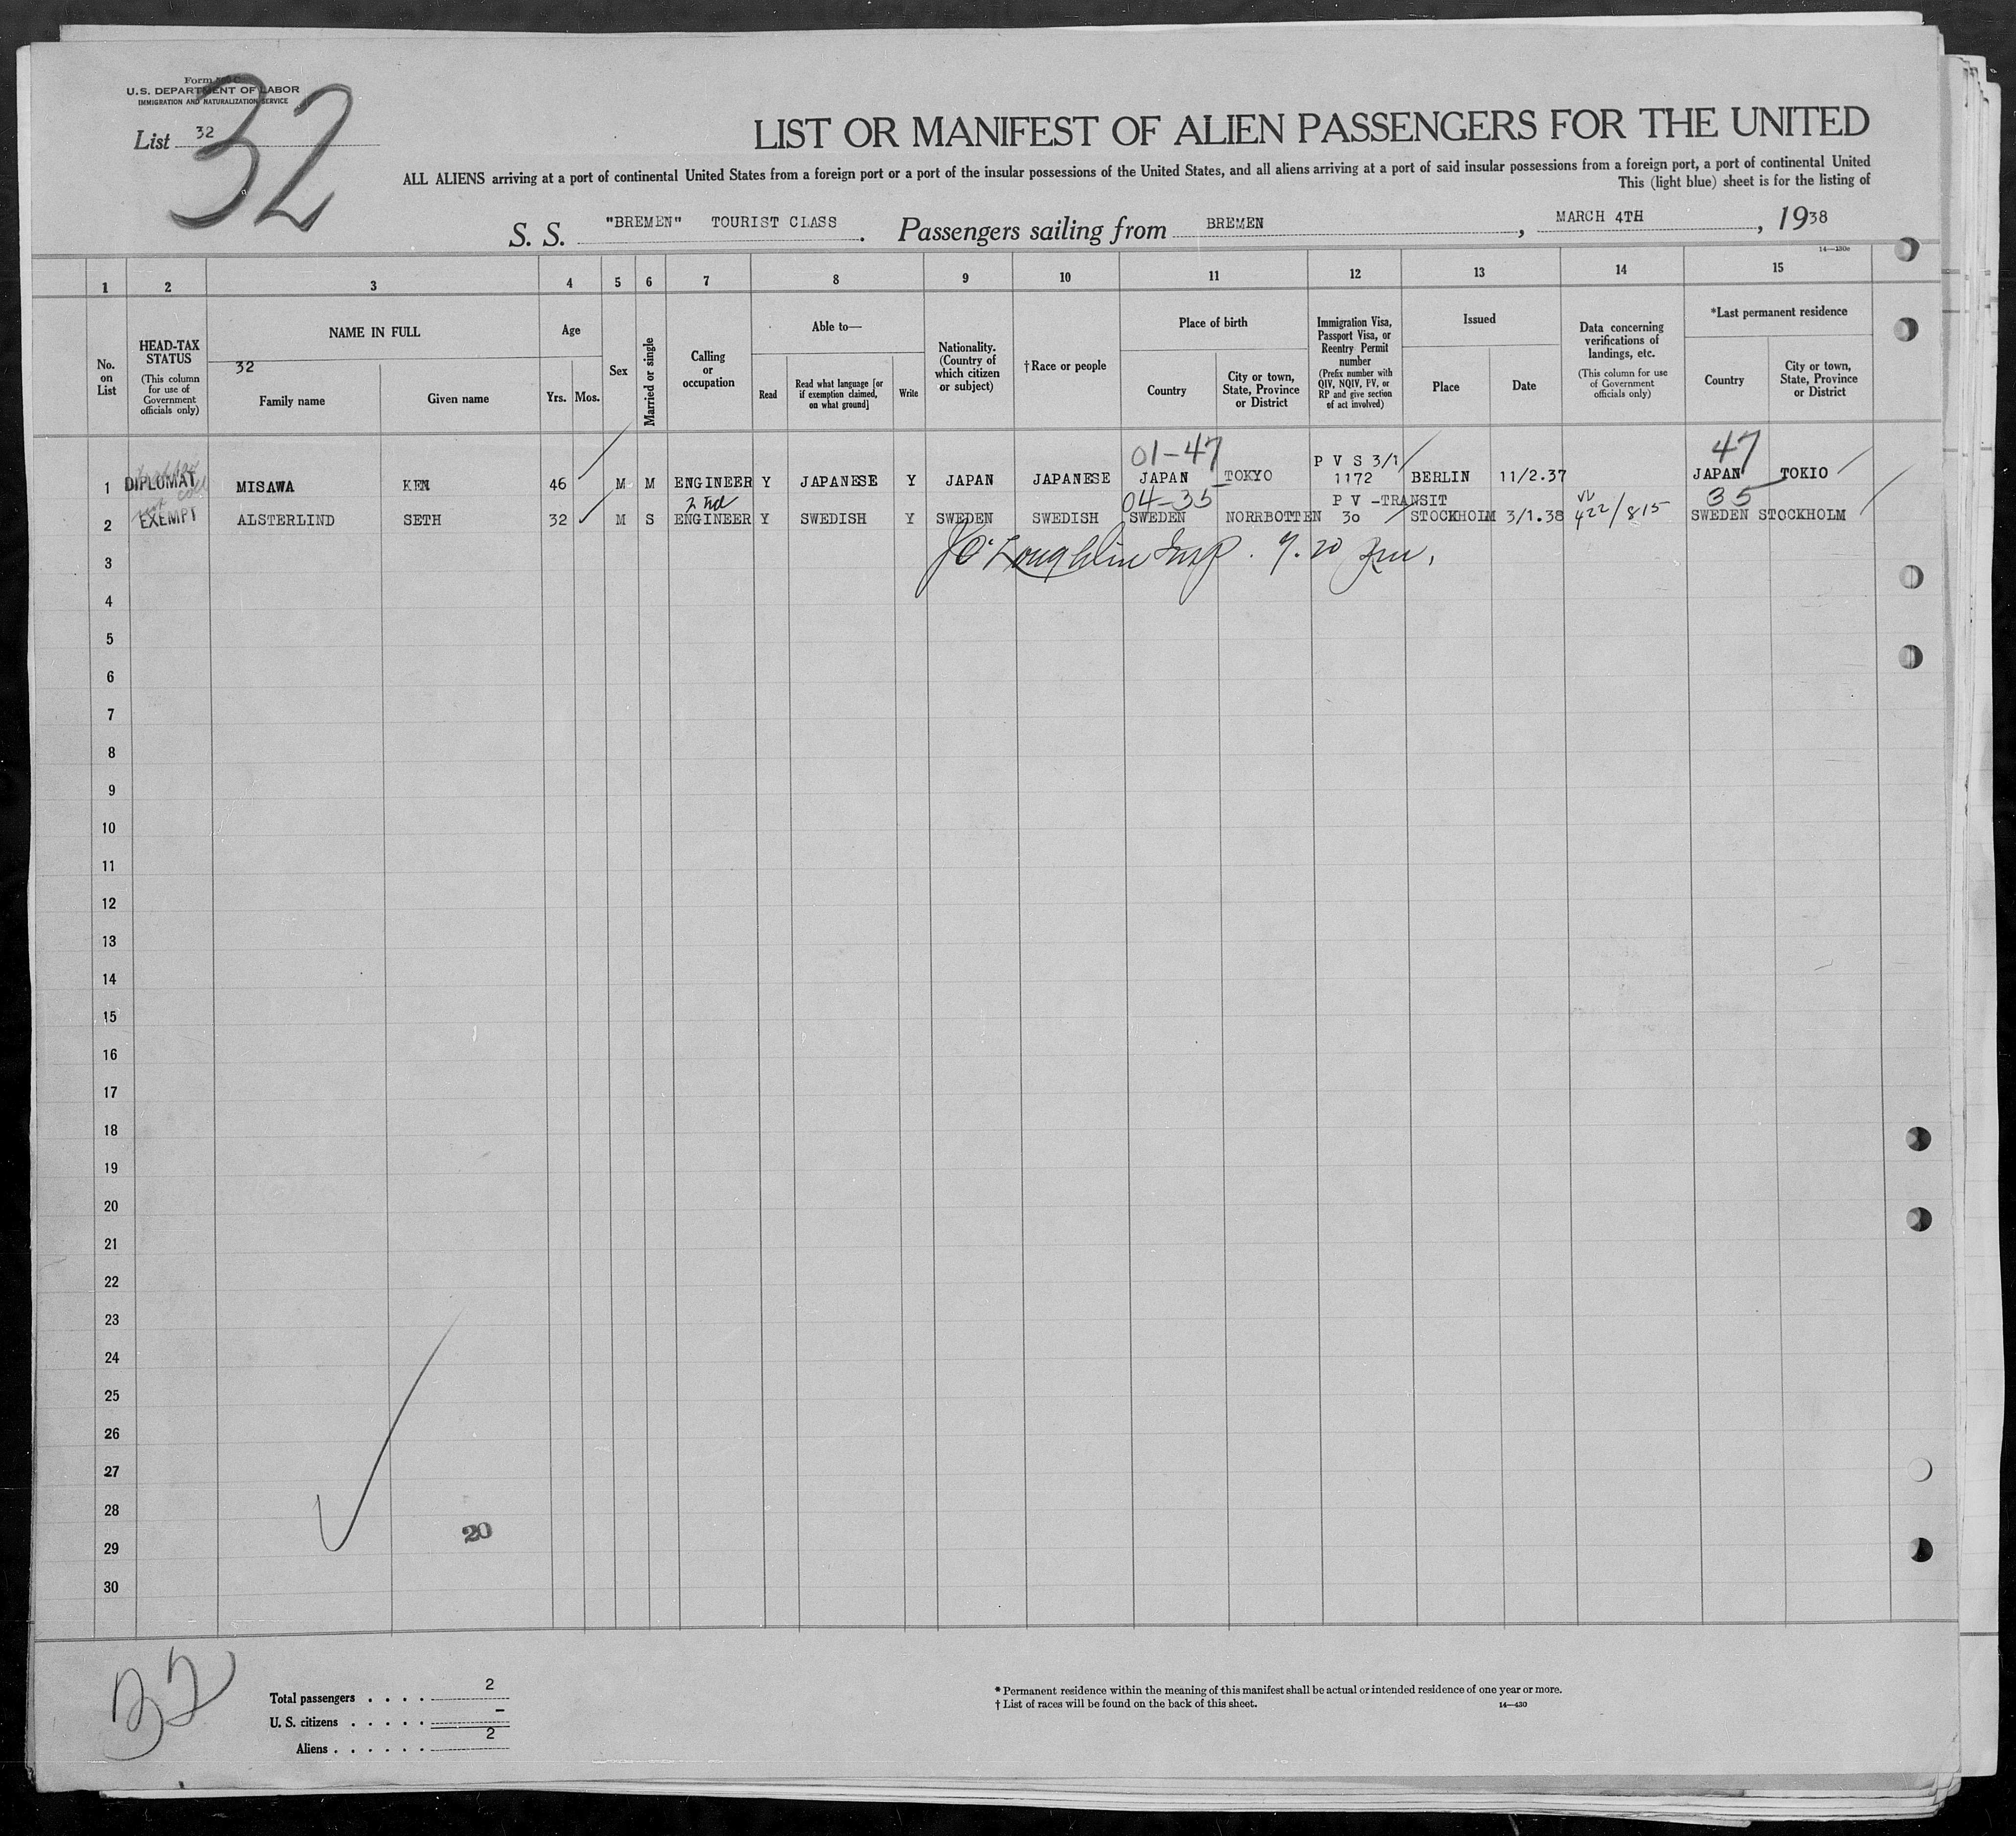 U.S. DEPARTMENT OF LABOR
IMMIGRATION AND NATURALIZATION SERVICE
List 32
32
LIST OR MANIFEST OF ALIEN PASSENGERS FOR THE UNITED
ALL ALIENS arriving at a port of continental United States from a foreign port or a port of the insular possessions of the United States, and all aliens arriving at a port of said insular possessions from a foreign port, a port of continental United
This (light blue) sheet is for the listing of
S. S. "BREMEN" TOURIST CLASS . Passengers sailing from BREMEN , MARCH 4TH , 1938
14—430e
1 2 3 4 5 6 7 8 9 10 11 12 13 14 15
No. on List
HEAD-TAX STATUS
(This column for use of Government officials only)
NAME IN FULL
32
Family name
Given name
Age
Yrs. Mos.
Sex
Married or single
Calling or occupation
Able to—
Read
Read what language [or if exemption claimed, on what ground]
Write
Nationality. (Country of which citizen or subject)
†Race or people
Place of birth
Country
City or town, State, Province or District
Immigration Visa, Passport Visa, or Reentry Permit number
(Prefix number with QIV, NQIV, PV, or RP and give section of act involved)
Issued
Place
Date
Data concerning verifications of landings, etc.
(This column for use of Government officials only)
*Last permanent residence
Country
City or town, State, Province or District
01-47 P V S 3/1 47
1 DIPLOMAT MISAWA KEN 46 M M ENGINEER Y JAPANESE Y JAPAN JAPANESE JAPAN TOKYO 1172 BERLIN 11/2.37 JAPAN TOKIO
04-35 P V -TRANSIT 35
2 EXEMPT ALSTERLIND SETH 32 M S ENGINEER Y SWEDISH Y SWEDEN SWEDISH SWEDEN NORRBOTTEN 30 STOCKHOLM 3/1.38 422/815 SWEDEN STOCKHOLM
3 J O'Loughlin Insp. 9.20
4
5
6
7
8
9
10
11
12
13
14
15
16
17
18
19
20
21
22
23
24
25
26
27
28
20
29
30
32
Total passengers . . . . 2
U. S. citizens . . . . . –
Aliens . . . . . . 2
* Permanent residence within the meaning of this manifest shall be actual or intended residence of one year or more.
† List of races will be found on the back of this sheet. 14—430